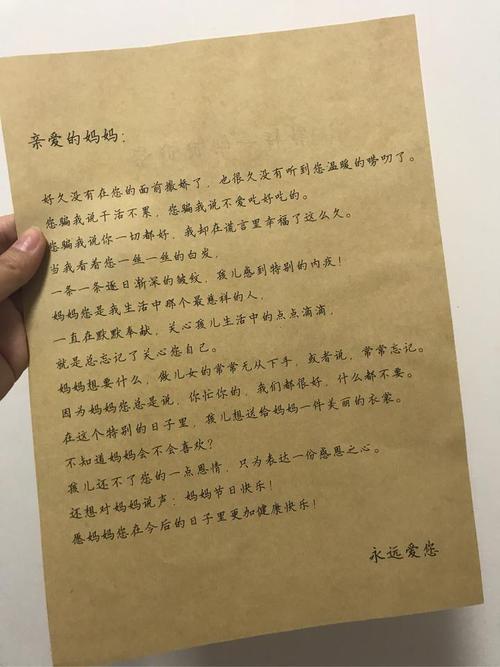 亲爱的妈妈：
好久没有在您的面前撒娇了，也很久没有听到您温暖的唠叨了。
您骗我说干活不累，您骗我说不爱吃好吃的。
您骗我说你一切都好，我却在谎言里幸福了这么久。
当我看着您一丝一丝的白发，
一条一条逐日渐深的皱纹，孩儿感到特别的内疚！
妈妈您是我生活中那个最慈祥的人，
一直在默默奉献，关心孩儿生活中的点点滴滴，
就是总忘记了关心您自己。
妈妈想要什么，做儿女的常常无从下手，或者说，常常忘记。
因为妈妈您总是说，你忙你的，我们都很好，什么都不要。
在这个特别的日子里，孩儿想送给妈妈一件美丽的衣裳。
不知道妈妈会不会喜欢？
孩儿还不了您的一点恩情，只为表达一份感恩之心。
还想对妈妈说声：妈妈节日快乐！
愿妈妈您在今后的日子里更加健康快乐！
永远爱您